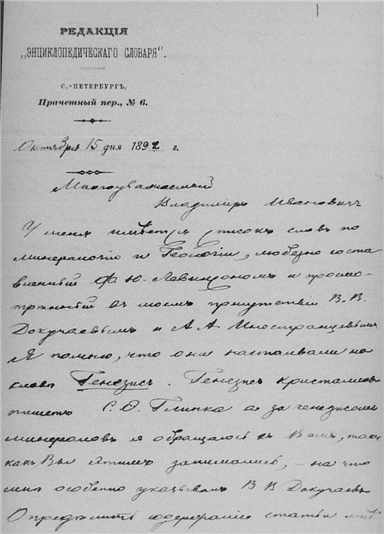 РЕДАКЦІЯ
„ЭНЦИКЛОПЕДИЧЕСКАГО СЛОВАРЯ".
С.-ПЕТЕРБУРГЪ,
Прачешный пер., № 6.
Октября 15 дня 1892 г.
Многоуважаемый
Владиміръ Ивановичъ
У меня имѣется списокъ словъ по
минералогіи и Геологіи, любезно соста
вленный Ф. Ю. Левинсономъ и просмо
трѣнный въ моемъ присутствіи В. В.
Докучаевымъ и А. А. Иностранцевымъ
Я помню, что они настаивали на
словѣ Генезисъ. Генезисъ кристалловъ
пишетъ С. Ѳ. Глинка а за генезисомъ
минераловъ я обращаюсь къ Вамъ, такъ
какъ Вы этимъ занимались, – на что
мнѣ особенно указывалъ В. В. Докучаевъ
Опредѣлить содержаніе статьи